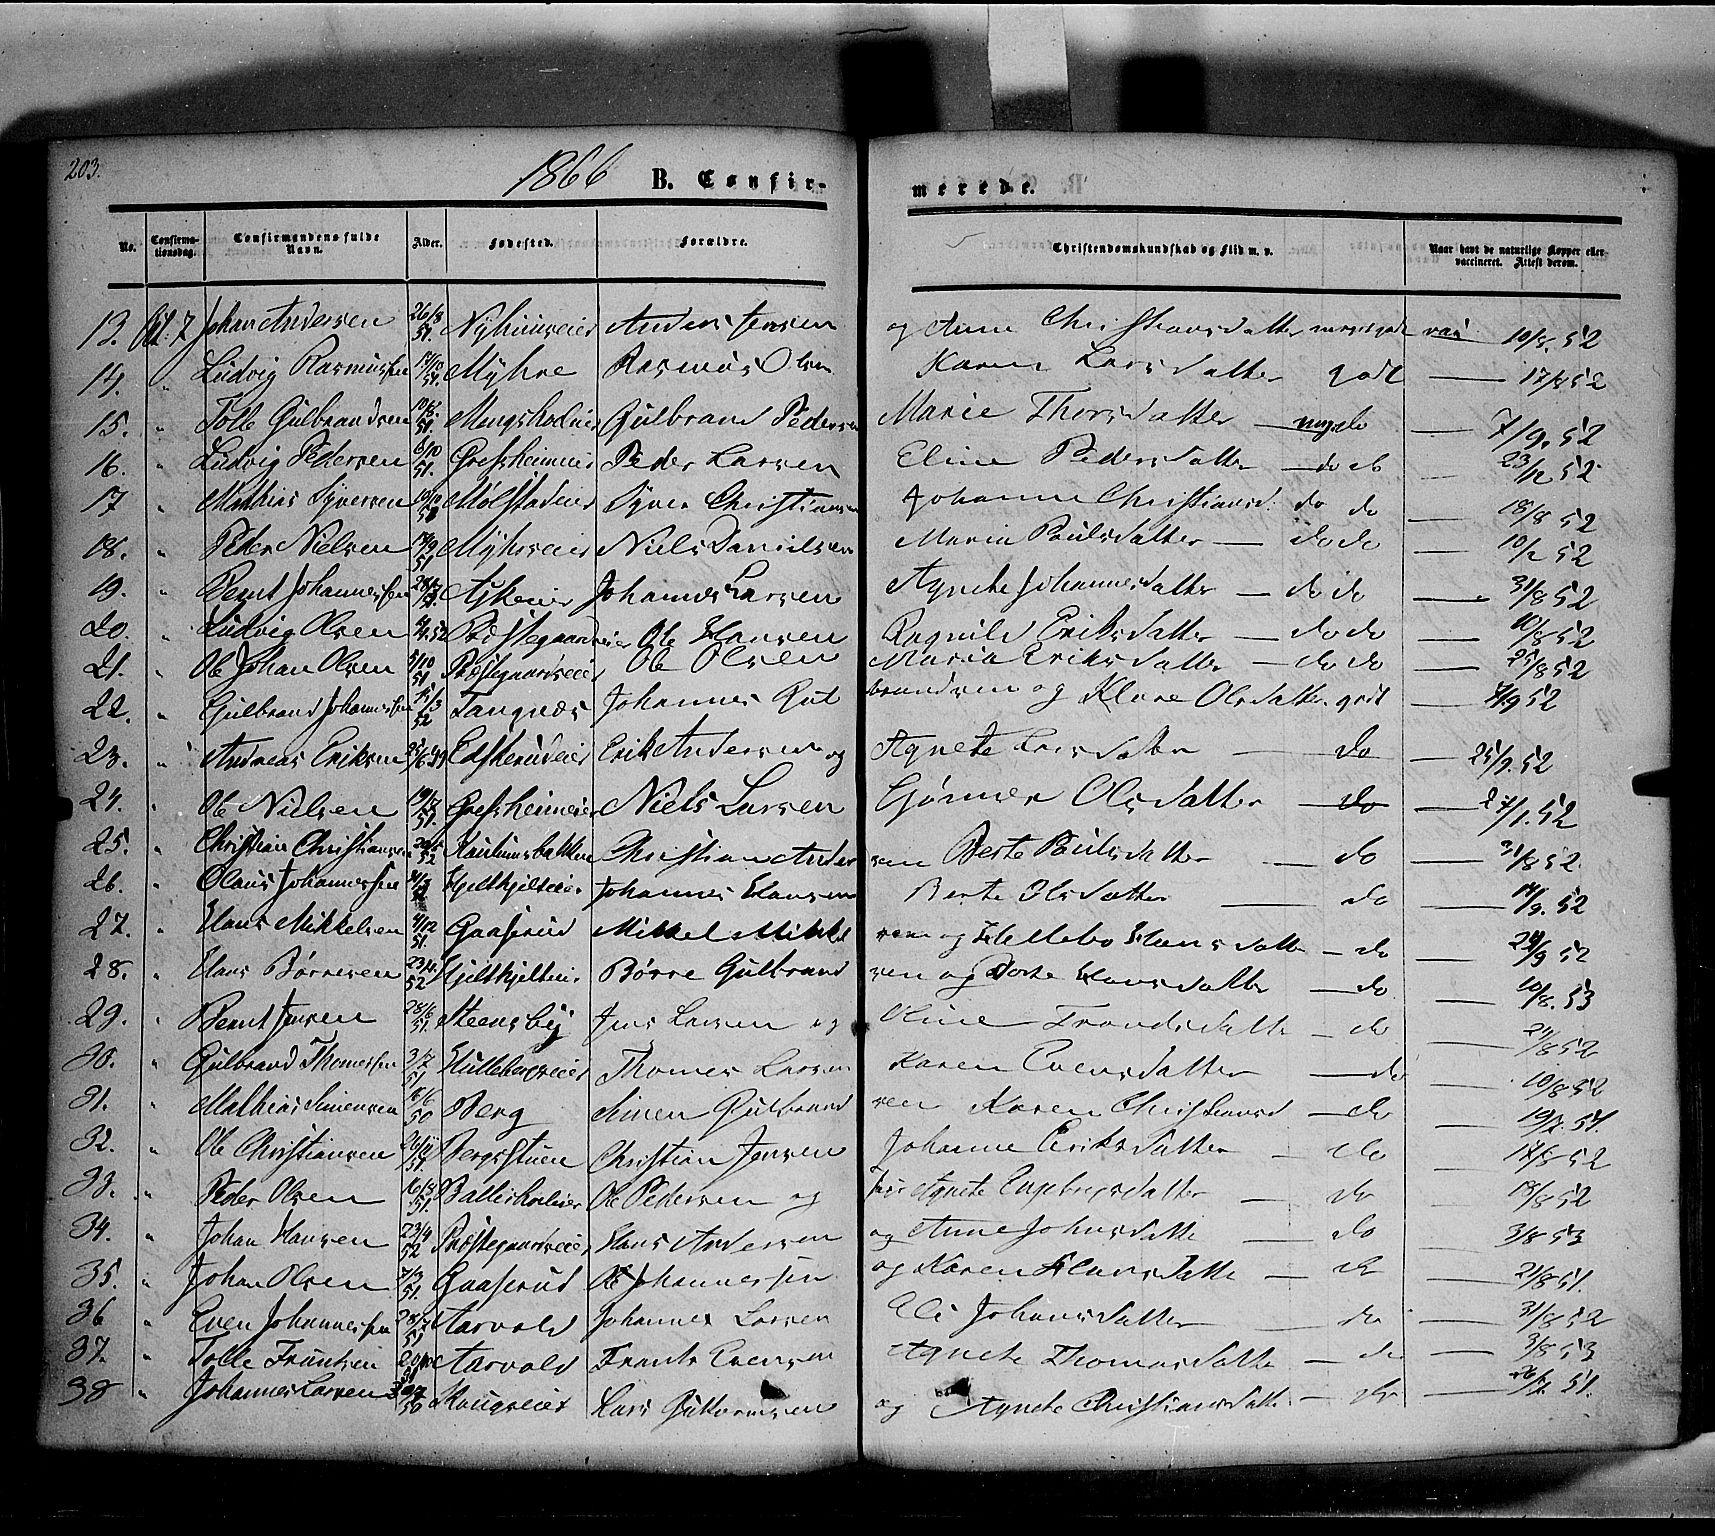 203.
1866 B. Confir- merede.
No. Confirma-tionsdag. Confirmandens fulde Navn. Alder. Fødested. Forældre. Christendomskundskab og Flid m. v. Naar havt de naturlige Kopper eller vaccineret. Attest derom.
13. 7 Johan Andersen 26/8 51. Anders Jensen og Anne Christiansdatter megetgodt vac 10/8. 52
14. " Ludvig Rasmussen Myhre Rasmus Olsen Karen Larsdatter godt — 17/8 52
15. " Tolle Gulbrandsen 10/8 51. Gulbrand Pedersen Marie Thorsdatter — do — 7/9. 52
16. " Ludvig Pedersen 6/10 51. Peder Larsen Eline Pedersdatter — do do - 23/12 52
17 " Mathias Syversen Mølstadeier Syver Christiansen Johanne Christiansd. do do — 18/8 52
18. " Peder Nielsen Myhreeier Niels Danielsen Maria Paulsdatter — do do — 10/2 52
19. " Bernt Johannessen Askeeier Johannes Larsen Agnete Johannesdatter — do do — 31/8 52
20. " Ludvig Olsen Præstegaardseier Ole Hansen Ragnild Eriksdatter — do do — 10/8 52
21. " Ole Johan Olsen 5/10 51. Præstegaardseier Ole Olsen Maria Eriksdatter — do do — 25/8 52
22. " Gulbrand Johannessen Tangnæs Johannes Gulbrandsen og Klare Olsdatter. godt — 7/9 52
23. " Andreas Eriksen Erik Andersen og Agnete Larsdatter — do — 25/9. 52
24. " Ole Nielsen Niels Larsen Olsdatter — do — 27/1. 52
25. " Christian Christiansen Christian Andersen Berte Paulsdatter — do — 31/8 52.
26. " Olaus Johannessen Hjeltkjelseier Johannes Hansen Berte Olsdatter — do — 17/9. 52
27. " Hans Mikkelsen 4/12 51. Gaaserud Mikkel Mikkelsen og Hansdatter — do — 9 52
28. " Hans Børresen 52 Børre Gulbrandsen og Dorte Hansdatter — do — 10/8. 53
29. " Bernt Jensen 28/6 51. Steensby Jens Larsen og Oline Trondsdatter — do — 8 52
30. " Gulbrand Thomassen 3/7 51 Thomas Larsen Karen Evensdatter — do — 10/8 52
31. " Mathias Simensen 6 50 Berg Simen Gulbrandsen Karen Christiansd — do — 51.
32. " Ole Christiansen Bergsstuen Christian Jensen Johanne Eriksdatter — do — 17/8 52
33. " Peder Olsen Ole Pedersen og Agnete Engebrigsdatter — do — 18/8 52
34. " Johan Hansen 23/4 52 Præstegaardseier Hans Andersen og Anne Johnsdatte — do — 3/8 53
35. " Johan Olsen 7/3 51. Gaaserud Ole Johannessen og Karen Hansdatte — do — 21/8 51.
36 " Even Johannessen 28/7 51 Aarvold Johannes Larsen Eli Johansdatter — do — 31/8 52
37. " Tolle Frantsen Aarvold Frants Evensen Agnete Thomasdatte — do — 3/8 53
38 " Johannes Larsen 50 Haugseier Lars Guttormsen og Agnete Christiansdatte — do — 51.